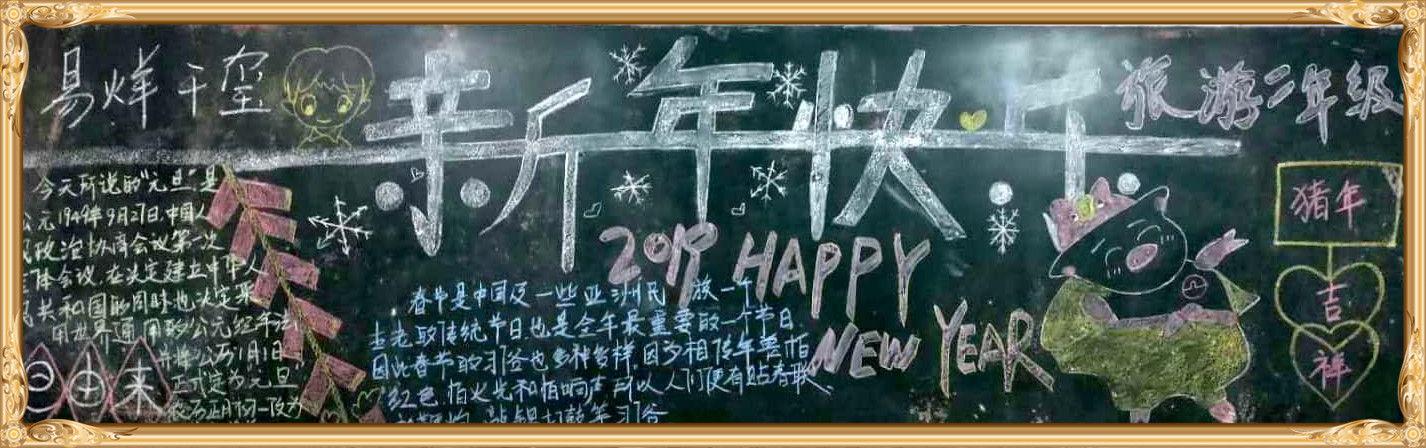 易烊千玺
新年快乐
旅游二年级
今天所说的"元旦"是
公元1949年9月27日,中国人
民政治协商会议第一次
全体会议,在决定建立中华人
民共和国的同时也决定采
用世界通用的公元纪年法
并将公历1月1日
正式定为元旦"
农历正月初一改为
由来
2019 HAPPY
NEW YEAR
春节是中国及一些亚洲民族一个
古老的传统节日,也是全年最重要的一个节日,
因此春节的习俗也多种多样,因为相传年兽怕
红色、怕火光和怕响声,所以人们便有贴春联、
敲锣打鼓等习俗
猪年
吉
祥